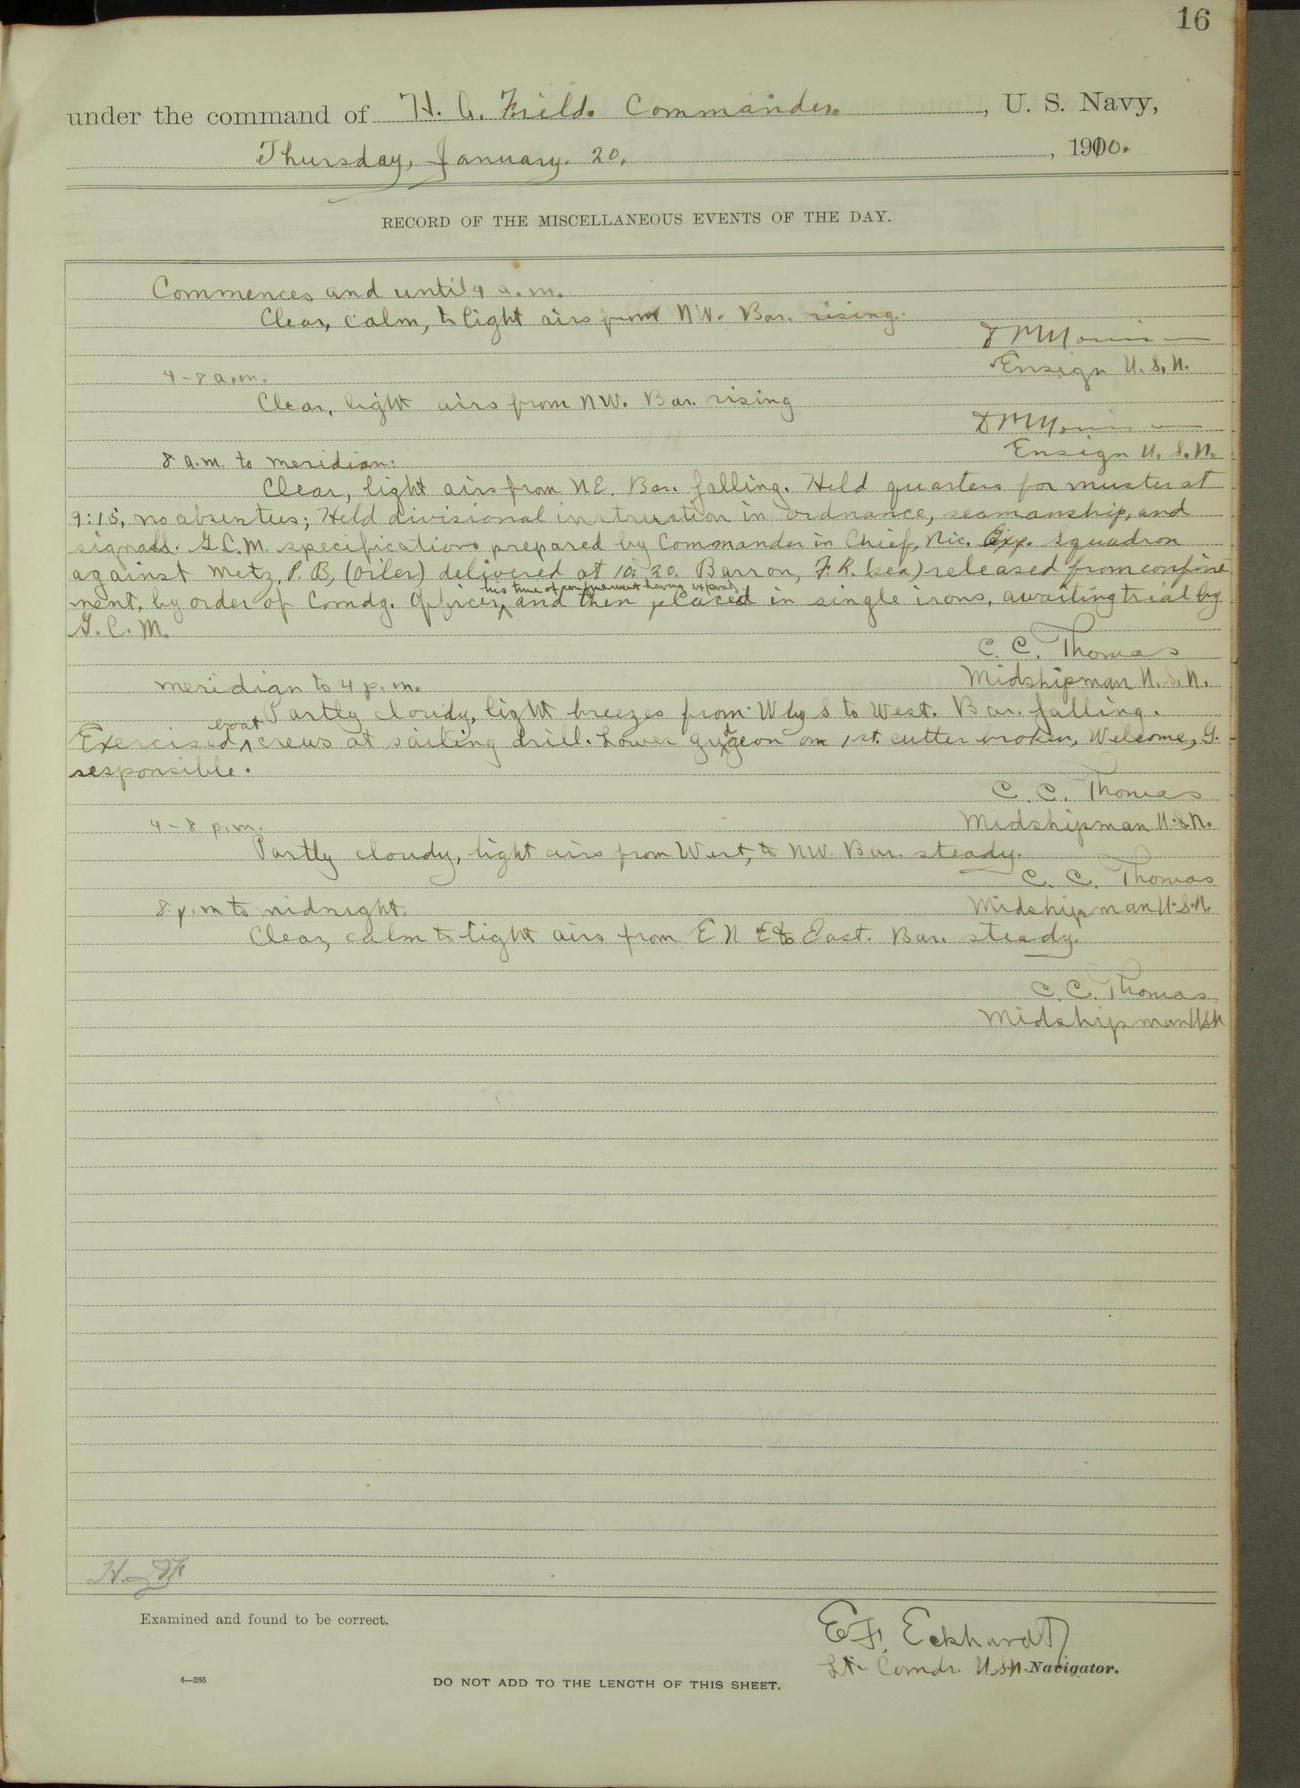 16
under the command of H. A. Field. Commander. , U. S. Navy,
Thursday, January. 20. , 1910.
RECORD OF THE MISCELLANEOUS EVENTS OF THE DAY.
Commences and until 4 a.m.
Clear, calm, to light airs from NW. Bar. rising.
Ensign U.S.N.
4-8 a.m.
Clear, light airs from NW. Bar. rising
Ensign U.S.N.
8 a.m. to meridian:
Clear, light airs from NE. Bar. falling. Held quarters for muster at
9:15, no absentees; Held divisional instruction in ordnance, seamanship, and
signals. G.C.M. specifications prepared by Commander in Chief, Nic. Exp. Squadron
against Metz, P. B, (Oiler) delivered at 10; 20. Barron, F. R. (sea) released from confine
his time of confinement having expired,
ment, by order of Comdg. Officer, ^ and then placed in single irons, awaiting trial by
G. C. M.
C. C. Thomas
Midshipman U.S.N.
meridian to 4 p.m.
Partly cloudy, light breezes from W by S to West. Bar. falling.
boat
Exercised ^ crews at sailing drill. Lower gudgeon on 1st. cutter broken, Welcome, G.
responsible.
C. C. Thomas
Midshipman U.S.N.
4-8 p.m.
Partly cloudy, light airs from West, to NW. Bar. steady.
C. C. Thomas
Midshipman U.S.N
8 p.m to midnight.
Clear, calm to light airs from E N E to East. Bar. steady.
C. C. Thomas.
Midshipman USN
Examined and found to be correct.
E. F. Eckhardt
Lt- Comdr. U.S.N. Navigator.
4—265
DO NOT ADD TO THE LENGTH OF THIS SHEET.